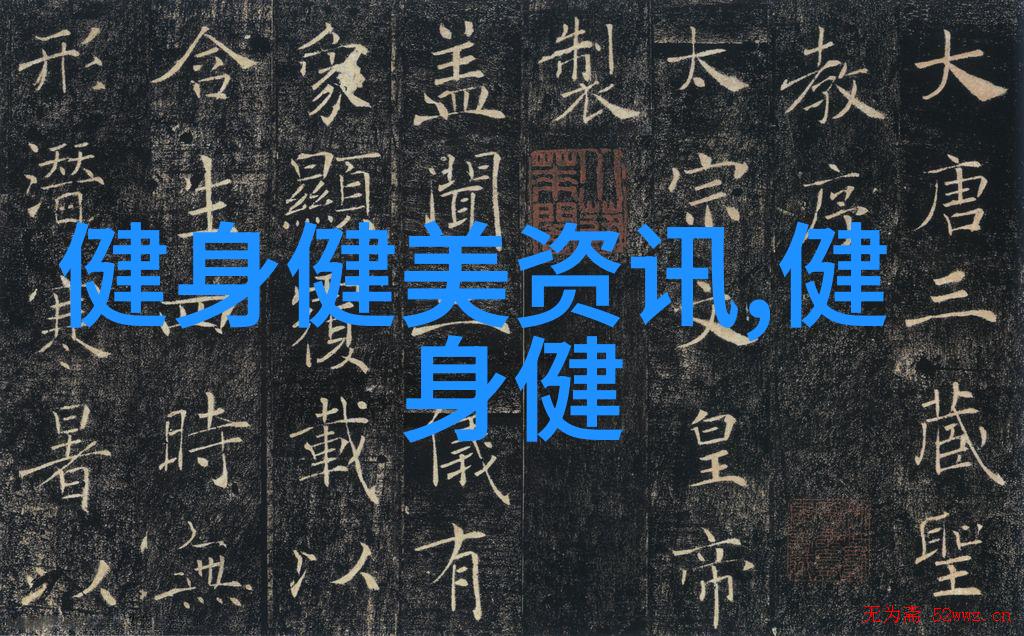 健身健美资讯,健
身健
大唐三藏聖
教序
太宗文皇帝
製
盖聞二儀有
象顯覆載以
含生四時無
形潛寒暑以
无为斋 52wwz.cn